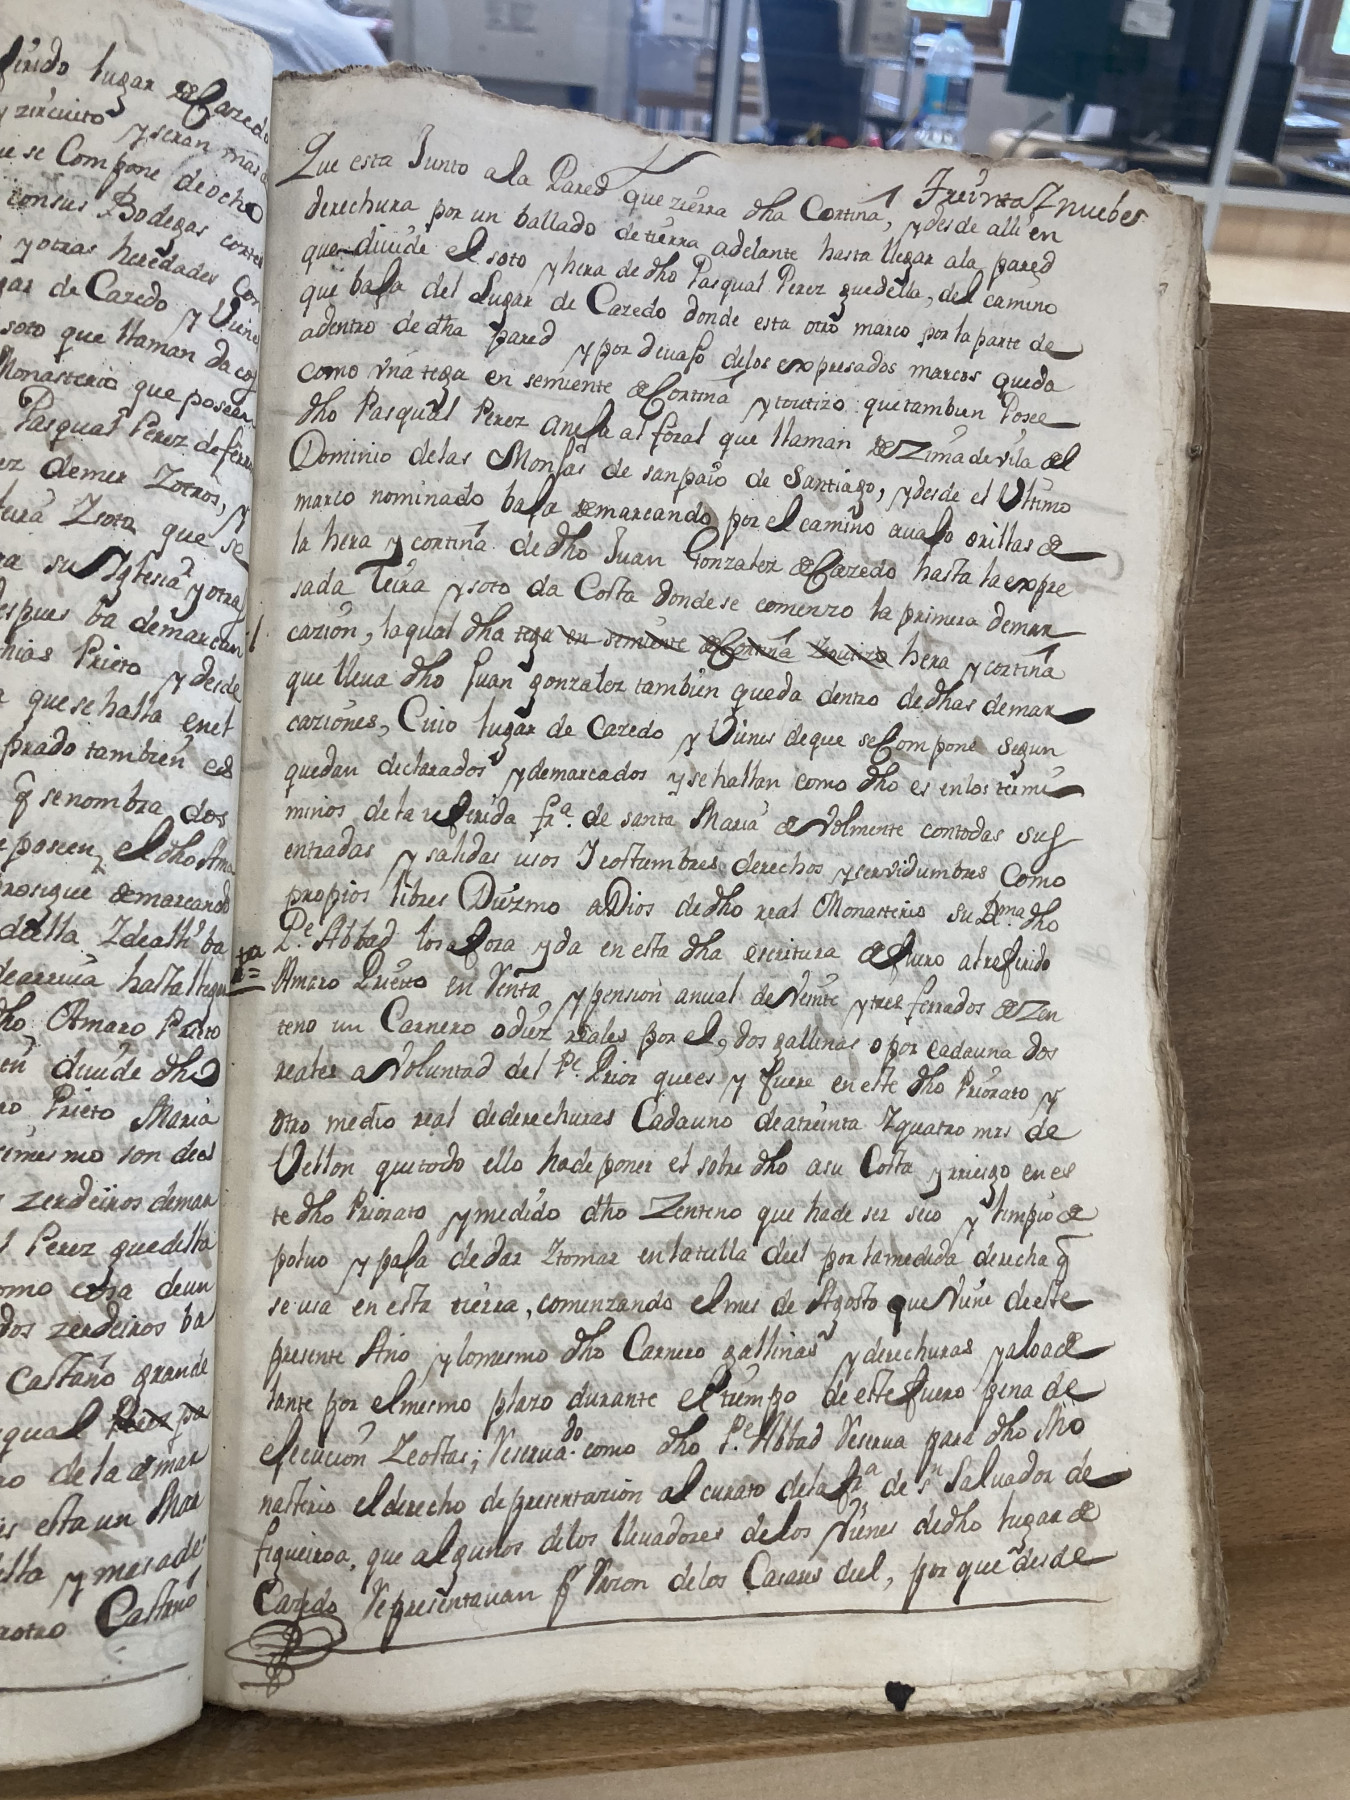 ferido lugar de Cazedo
y zircuito y seran mas
ue se Compone de ocho
consus Bodegas corres
y otras heredades Cor
gar de Cazedo y Vienes
soto que llaman da cos
Monasterio que poseen
Pasqual Perez de ferr
ez demer Zotros, y
tura Zsota que se
ra su Yglesia y otra
despues ba demarcan
thias Prieto y desde
a que se halla en el
prado tambien es
q̃ se nombra dos
e poseen, el dho Ama
prosigue demarcando
della Zdealli ba
dearriva hasta llegar
dho Amaro Prieto
en diuide dho
ro Prieto Maria
imesmo son del
s zerdeiros demar
l Perez quedella
omo cosa de un
dos zerdeiros ba
Castaño grande
squal Perez pa
ro de la demar
is esta un Mar
ella y mesades
rotro Castaño
Treinta Z nuebe
Que esta Junto a la Pared que zierra dha Cortiña, y desde alli en
derechura por un ballado de tierra adelante hasta llegar ala pared
que diuide el soto y hera de dho Pasqual Perez quedella, del camino
que baja del Lugar de Cazedo donde esta otro marco por la parte de
adentro de dha pared y por devajo delos expresados marcos queda
como vna tega en semiente de Cortiña y toutizo que tambien Posee
dho Pasqual Perez aneja al foral que llaman de Zima de vila del
Dominio delas Monjas de sanpaio de Santiago, y desde el Ultimo
marco nominado baja demarcando por el camino avajo orillas de
la hera y cortiña de dho Juan Gonzalez de Cazedo hasta la expre
sada Leira y soto da Costa donde se comenzo la primera demar
cazion, la qual dha tega en semiente de Cortiña Ztoutizo hera y cortiña
que lleua dho Juan gonzalez tambien queda dentro de dhas demar
caziones, Cuio lugar de Cazedo y Vienes de que se Compone segun
quedan declarados y demarcados y se hallan como dho es en los termi
minos de la referida frª. de santa Maria de Volmente contodas sus
entradas y salidas usos Y costumbres derechos y servidumbres Como
propios libres Diezmo a Dios de dho real Monasterio su Pma. dho
Pe. Abbad los afora y da en esta dha escritura de fuero al referido
Amaro Prieto en Renta y pension anual de Veinte y tres ferrados de Zen
teno un Carnero o diez reales por el, dos gallinas o por cada una dos
reales a Voluntad del Pe. Prior que es y fuere en este dho Priorato y
otro medio real de derechuras Cada uno de a treinta Zquatro mrs de
Vellon que todo ello ha de poner el sobre dho a su Costa y rriesgo en es
te dho Priorato y medido dho Zenteno que ha de ser seco y limpio de
poluo y paja de dar Ztomar en la tulla deel por la medida derecha q̃
se usa en esta tierra, comenzando el mes de Agosto que Viene de este
presente Año y lo mesmo dho Carnero gallinas y derechuras y a lo ade
lante por el mesmo plazo durante el tiempo de este fuero pena de
ejecucion Zcostas; Reserua.do como dho Pe. Abbad Reserua para dho Mo
nasterio el derecho de presentazion al curato de la frª de Sn. Saluador de
figueiroa, que algunos de los lleuadores de los Vienes de dho lugar de
Cazedo Representauan por Razon de los Casares del, por que desde